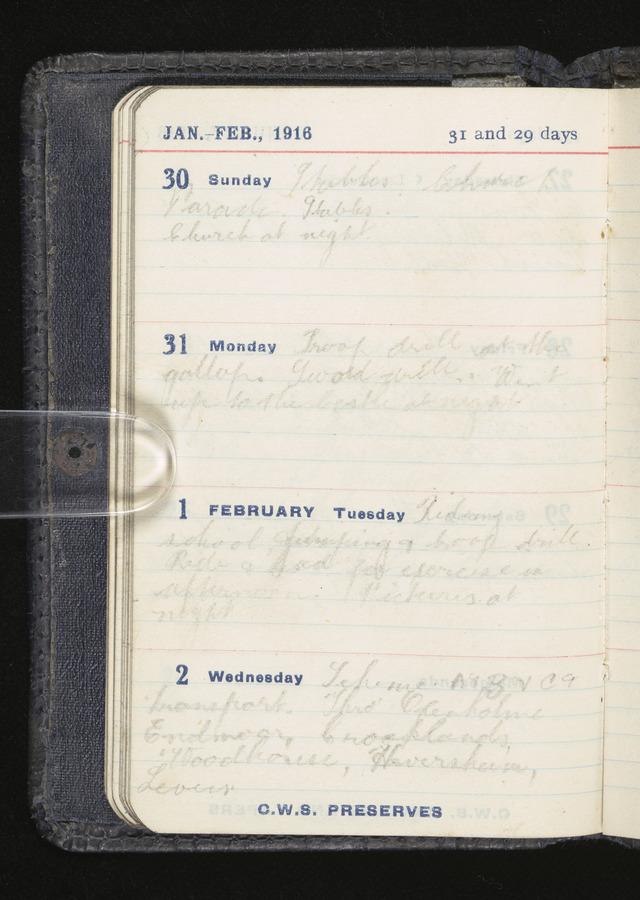 JAN.-FEB., 1916 31 and 29 days
30 Sunday Stables.
Parade. Stables.
Church at night.
31 Monday Troop drill at the
gallop. Sword drill. Went
up to the Castle at night
1 FEBRUARY Tuesday Riding
school, jumping & troop drill.
Rode a for exercise in
afternoon. Pictures at
night
2 Wednesday Scheme A B V C
transport. Thro' Oxenholme
Endmoor, Crooklands,
Woodhouse, Heversham,
Levens
C.W.S. PRESERVES